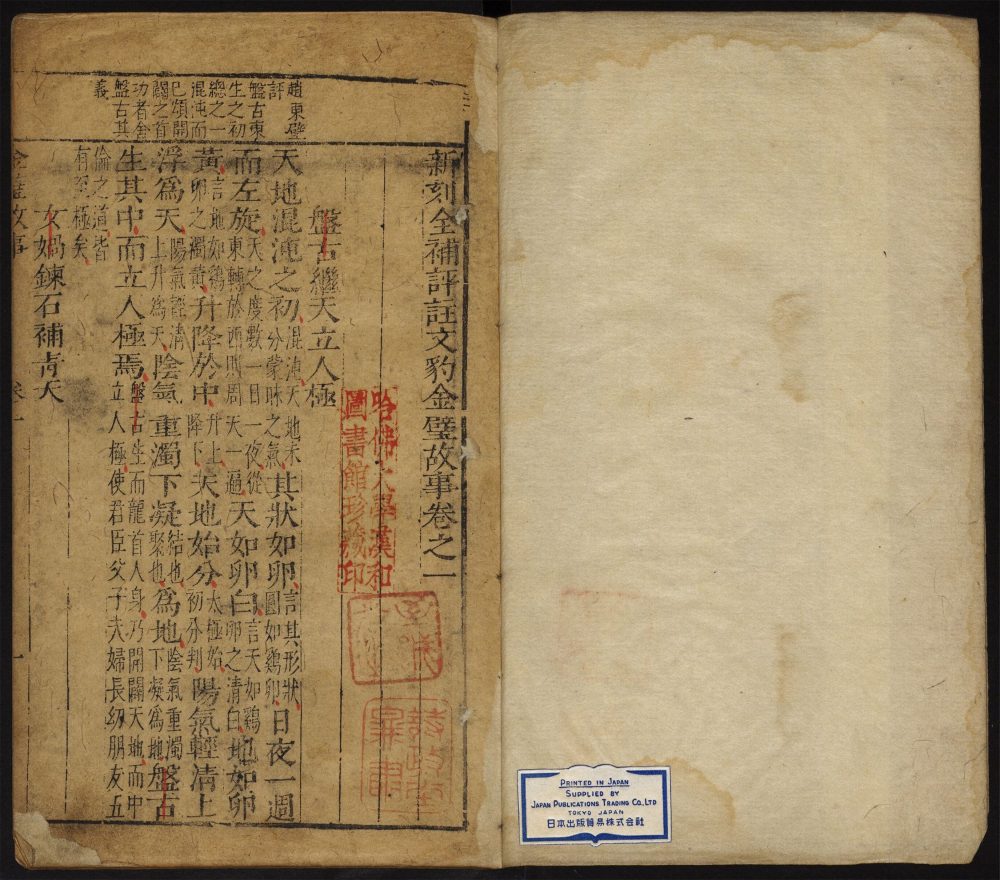 新刻全補評註文豹金璧故事卷之一
哈佛大學漢和
圖書館珍藏印
盤古繼天立人極
趙東璧
評
盤古東
生之初
總之一
混沌而
已頌開
闢之首
功者舍
盤古其
義
天地混沌之初混沌天地未分蒙昧之氣其狀如卵言其形狀圓如鷄卵日夜一週
而左旋天之度數一日一夜從東轉於西則周天一遍天如卵白言天如鷄卵之清白地如卵
黃言地如鷄卵之濁黃升降於中升上降下天地始分太極始初分判陽氣輕清上
浮爲天陽氣輕清上升爲天陰氣重濁下凝結也聚也爲地陰氣重濁下凝爲地盤古
生其中而立人極焉盤古生而龍首人身乃開闢天地而中立人極使君臣父子夫婦長幼朋友五
倫之道皆有至極矣
女媧鍊石補青天
金璧故事 卷一 一
PRINTED IN JAPAN
SUPPLIED BY
JAPAN PUBLICATIONS TRADING CO., LTD
TOKYO JAPAN
日本出版貿易株式会社